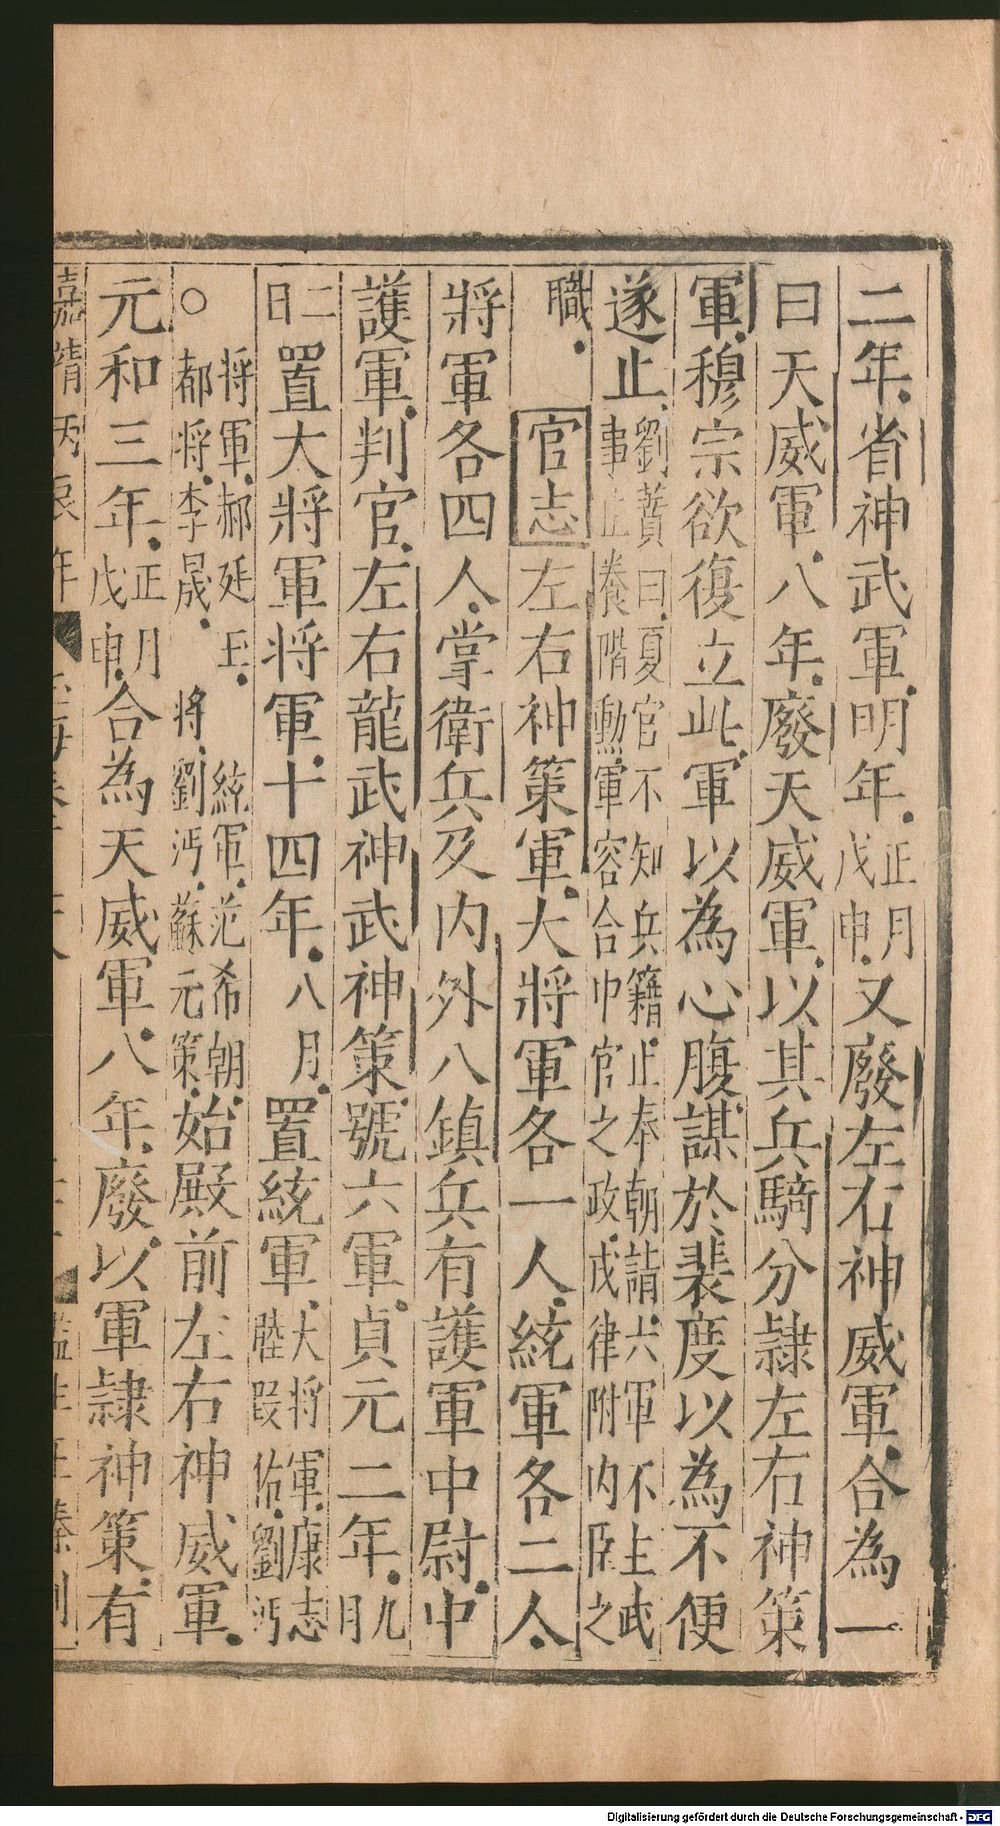 二年省神武軍明年正月戊申又廢左右神威軍合為一
曰天威軍八年廢天威軍以其兵騎分隷左右神策
軍穆宗欲復立此軍以為心腹謀於裴度以為不便
遂止劉蕡曰夏官不知兵籍止奉朝請六軍不主武事止養階勳軍容合中官之政戎律附内臣之
職官志左右神策軍大將軍各一人統軍各二人
將軍各四人掌衛兵及内外八鎮兵有護軍中尉中
護軍判官左右龍武神武神策號六軍貞元二年九月
二日置大將軍將軍十四年八月置統軍大将軍康志睦叚佑劉沔
○将軍郝延玉都将李晟統軍范希朝将劉沔蘇元策始殿前左右神威軍
元和三年正月戊申合為天威軍八年廢以軍隷神策有
嘉靖丙辰年
監生王榛刊
Digitalisierung gefördert durch die Deutsche Forschungsgemeinschaft - DFG